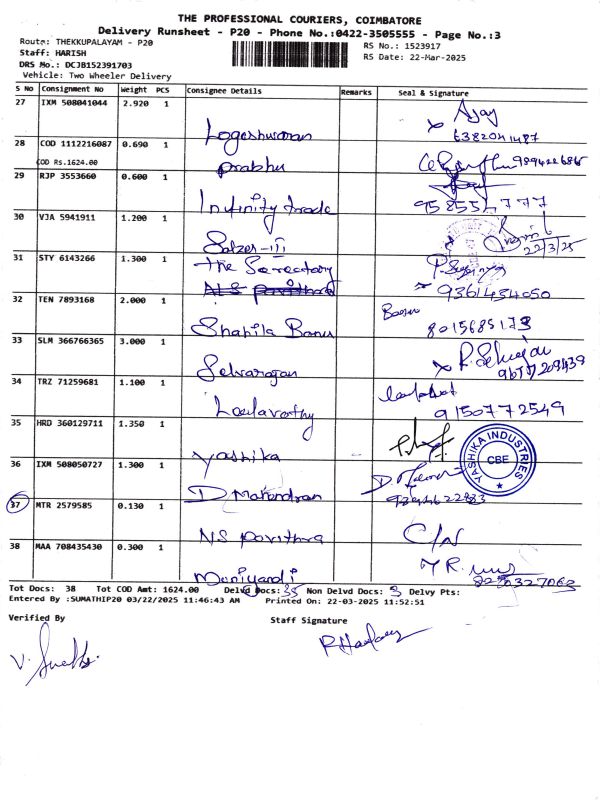 THE PROFESSIONAL COURIERS, COIMBATORE
Delivery Runsheet - P20 - Phone No.:0422-3505555 - Page No.:3
Route: THEKKUPALAYAM - P20
RS No.: 1523917
Staff: HARISH
RS Date: 22-Mar-2025
DRS No.: DCJB152391703
Vehicle: Two Wheeler Delivery
S No Consignment No Weight PCS Consignee Details Remarks Seal & Signature
27 IXM 508041044 2.920 1 Logeshwaran Ajay
6382041487
28 COD 1112216087 0.690 1 Prabhu
COD Rs.1624.00
29 RJP 3553660 0.600 1 Infinity trade
30 VJA 5941911 1.200 1 Salzer-III
22/3/25
31 STY 6143266 1.300 1 The Secretary
NS Pavithra
9361434050
32 TEN 7893168 2.000 1 Shahila Banu Banu
8015685173
33 SLM 366766365 3.000 1 Selvaragan
34 TRZ 71259681 1.100 1 Leelavathy
9150772549
35 HRD 360129711 1.350 1 Yashika
YASHIKA INDUSTRIES
CBE
36 IXM 508050727 1.300 1 D Mahendran
37 MTR 2579585 0.130 1 NS Pavithra C/N
38 MAA 708435430 0.300 1 Muniyandi
Tot Docs: 38 Tot COD Amt: 1624.00 Delvd Docs: 35 Non Delvd Docs: 3 Delvy Pts:
Entered By :SUMATHIP20 03/22/2025 11:46:43 AM Printed On: 22-03-2025 11:52:51
Verified By Staff Signature